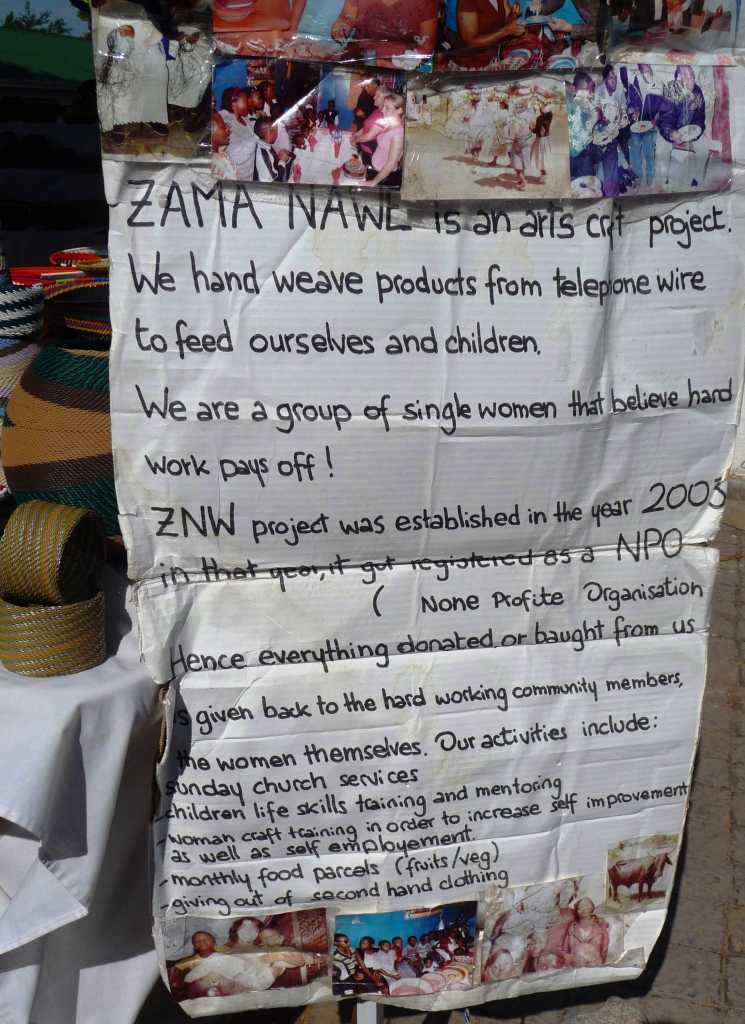 ZAMA NAWE is an arts crft project.
We hand weave products from telephone wire
to feed ourselves and children.
We are a group of single women that believe hard
work pays off!
ZNW project was established in the year 2003
in that year, it got registered as a NPO
( None Profite Organisation
Hence everything donated or baught from us
is given back to the hard working community members,
the women themselves. Our activities include:
sunday church services
-children life skills training and mentoring
-woman craft training in order to increase self improvement
as well as self employement.
-monthly food parcels (fruits/veg)
-giving out of second hand clothing